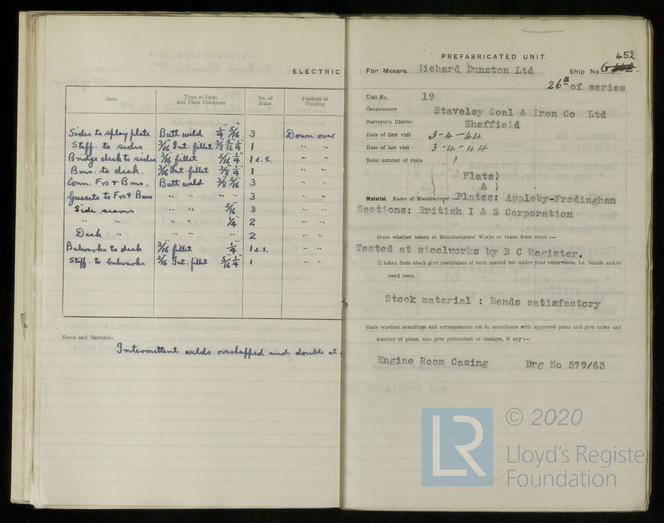 ELECTRIC
Item Type of Joint and Plate Thickness No. of Runs Position of Welding
Sides to splay plate Butt weld 1/4 5/16 3 Down over
Stiff. to sides 3/16 Int. fillet 3/8 5/16 1/4 1 " "
Bridge deck to sides 3/16 fillet 5/16 1/4 1 e.s. " "
Bms. to deck. 3/16 Int. fillet 3/8 1/4 1 " "
Conn. Frs + Bms. Butt weld 3/8 5/16 3 " "
Gussets to Frs + Bms " " " " 3 " "
Side seams " " 5/16 3 " "
" " " " 1/4 2 " "
Deck " " " " " 2 " "
Bulwarks to deck 3/16 fillet 1/4 1 e.s. " "
Stiff. to bulwarks 3/16 Int. fillet 5/16 1/4 1 " "
Notes and Sketches:
Intermittent welds overlapped and double at
PREFABRICATED UNIT
452
For Messrs Richard Dunston Ltd Ship No.
26th of series
Unit No. 19
Constructors Staveley Coal & Iron Co Ltd
Surveyor's District Sheffield
Date of first visit 3-4-44
Date of last visit 3-4-44
Total number of visits 1
( Flats)
( & )
Material. Name of Manufacturer Plates: Appleby-Frodingham
Sections: British I & S Corporation
State whether tested at Manufacturers' Works or taken from stock :—
Tested at steelworks by B C Register.
If taken from stock give particulars of tests carried out under your supervision, i.e. tensile and/or
bend tests.
Stock material : Bends satisfactory
State whether scantlings and arrangements are in accordance with approved plans and give name and
number of plans, also give particulars of changes, if any :—
Engine Room Casing Drg No 579/63
LR
© 2020
Lloyd's Register
Foundation